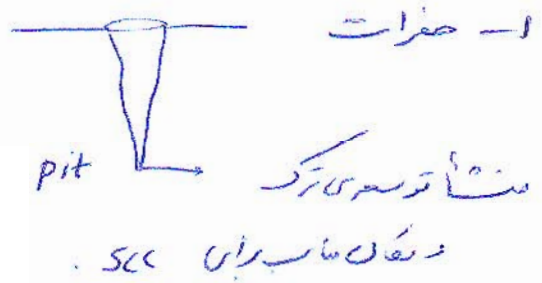 ۱- حفرات
pit
منشأ توسعه ی ترک
و مکان مناسب برای SCC .